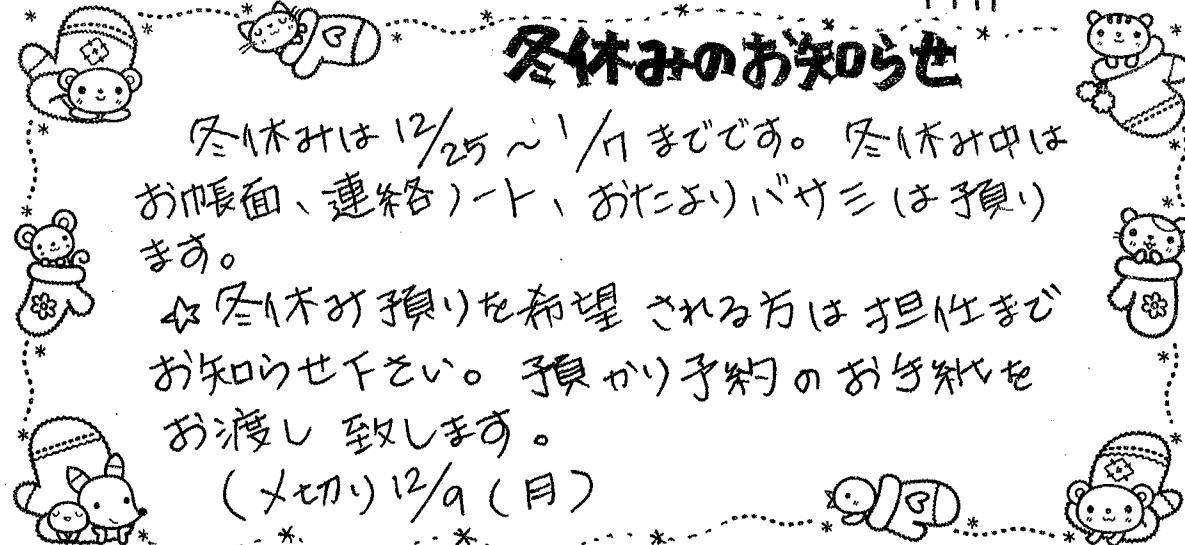 冬休みのお知らせ
冬休みは12/25~1/7までです。冬休み中は
お帳面、連絡ノート、おたよりバサミは預り
ます。
☆冬休み預りを希望される方は担任まで
お知らせ下さい。預かり予約のお手紙を
お渡し致します。
(〆切り12/9(月)